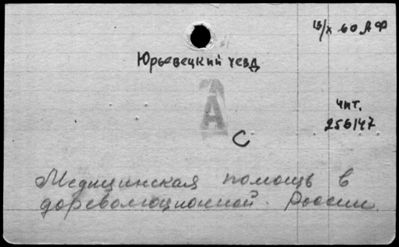 13/X 60 АФ
Юрьевецкий уезд
А
чит.
256147
С
Медицинская помощь в
дореволюционной России.